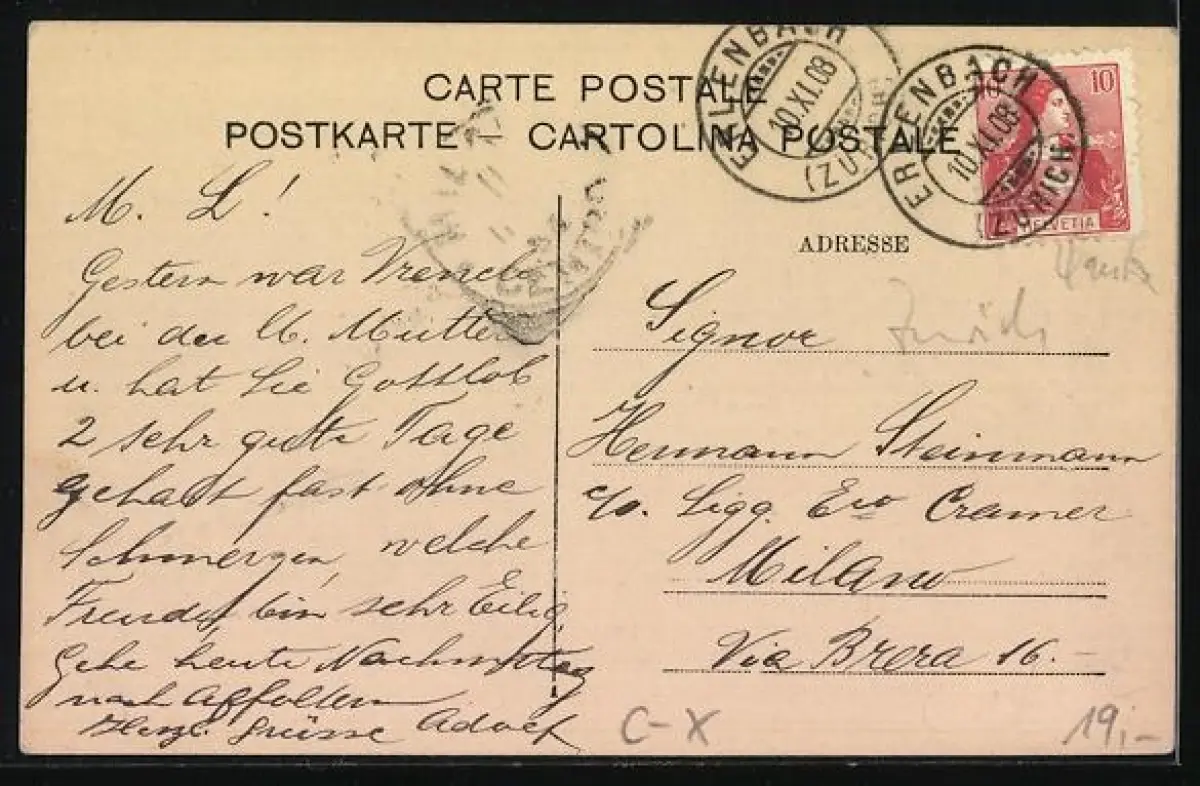 CARTE POSTALE
POSTKARTE – CARTOLINA POSTALE
ERLENBACH
10.XI.08
(ZÜRICH)
ERLENBACH
10.XI.08
(ZÜRICH)
10
HELVETIA
ADRESSE
M. L!
Gestern war Vreneli
bei der lb. Mutter
u. hat Sie Gottlob
2 sehr gute Tage
gehabt fast ohne
Schmerzen, welche
Freude, bin sehr Eilig,
Gehe heute Nachmittag
nach Affoltern
Herzl. Grüsse Adolf
Signor
Hermann Steinmann
c/o. Sigg. Cramer
Milano
Via Brera 16.–
Zürich
C-X
19,-